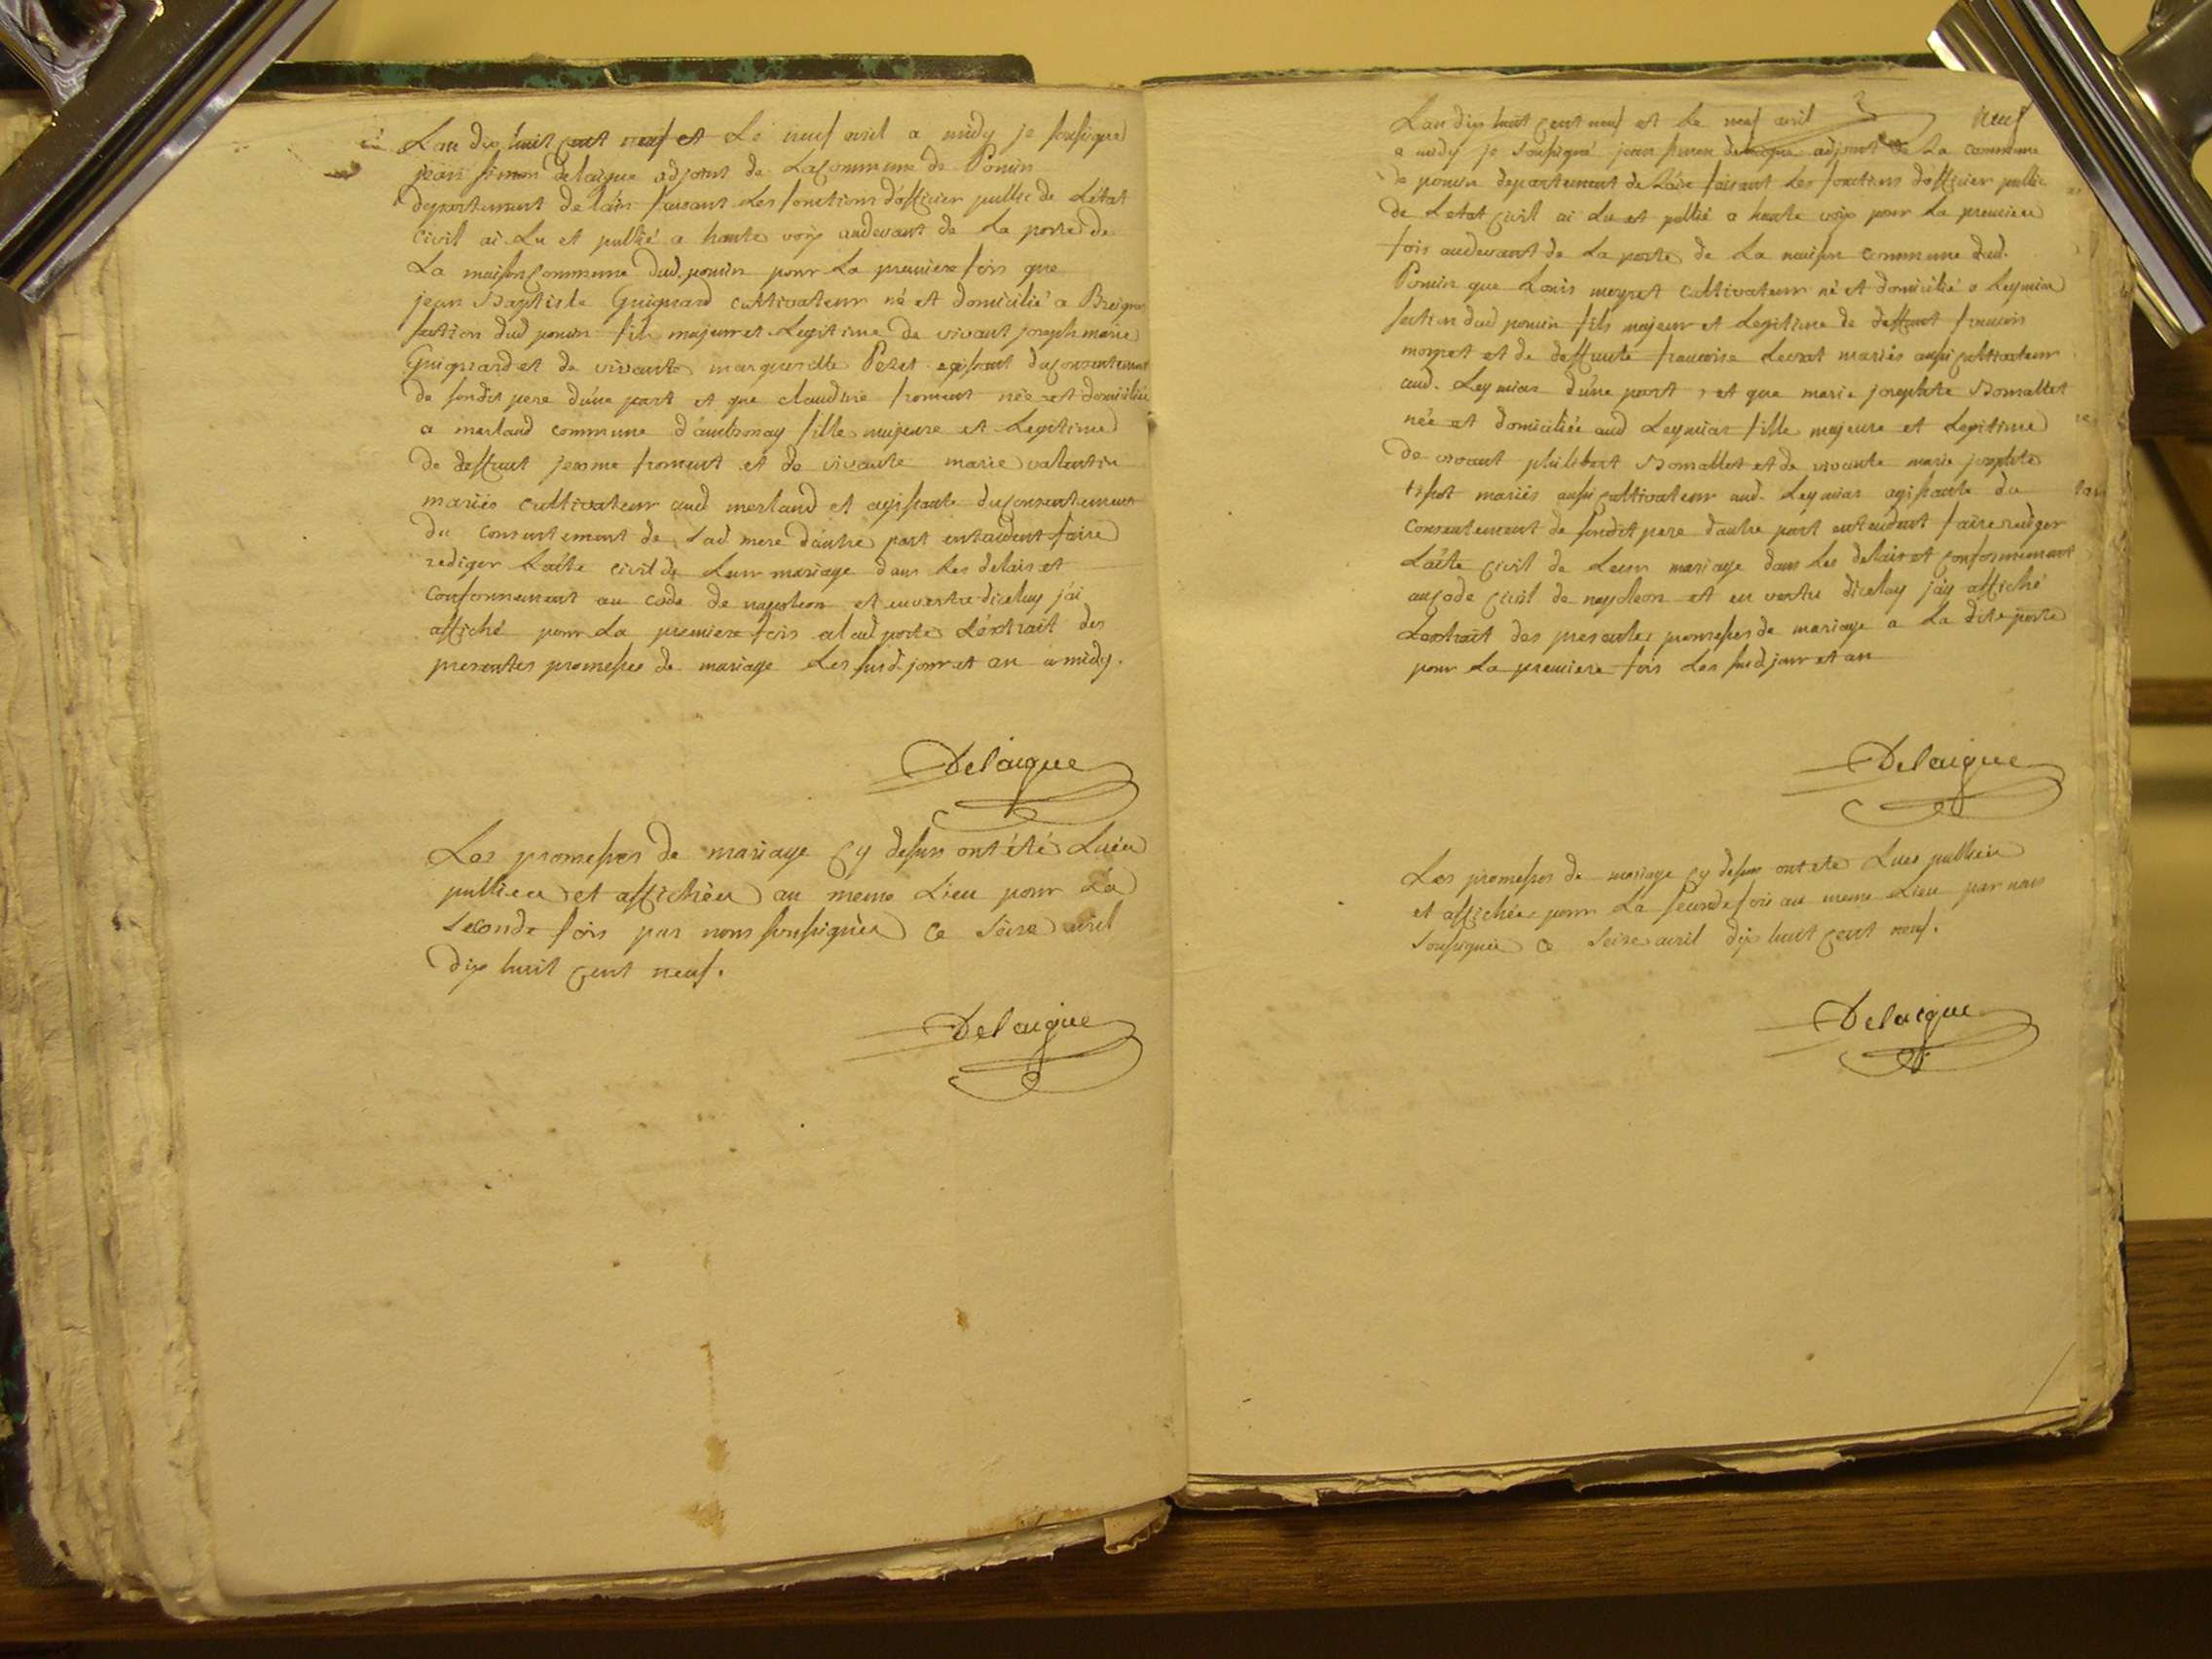 Lan dix huit cent neuf et Le neuf avril a midy je soussigné
jean simon delaigue adjoint de La commune de Poncin
departement de lain faisant Les fonctions d'officier public de L'état
civil ai Lu et publié a haute voix audevant de La porte de
La maison commune dud. poncin pour La premiere fois que
jean Baptiste Guignard cultivateur né et domicilié a
section dud poncin fils majeur et Legitime de vivant joseph marie
Guignard et de vivante marguerite Peret agissant du consentement
de sondit pere d'une part et que claudine froment née et domiciliée
a merland commune d'ambronay fille majeure et Legitime
de deffunt jerome froment et de vivante marie valentin
mariés cultivateur aud merland et agissante du consentement
du consentement de Lad mere d'autre part entendent faire
rediger L'acte civil de Leur mariage dans Les delais et
conformement au code de napoleon et en vertu diceluy j'ai
affiché pour La premiere fois a lad porte L'extrait des
presentes promesses de mariage Les susd. jour et an a midy.
Delaigue
Les promesses de mariage cy dessus ont été Luées
publiées et affichées au meme Lieu pour La
seconde fois par nous soussignés ce seize avril
dix huit cent neuf.
Delaigue
neuf
Lan dix huit cent neuf et Le neuf avril
a midy je soussigné jean simon delaigue adjoint de La commune
de poncin departement de Lain faisant Les fonctions d'officier public
de Letat civil ai Lu et publié a haute voix pour La premiere
fois audevant de La porte de La maison commune dud.
Poncin que Louis moyret cultivateur né et domicilié a Leymiar
section dud poncin fils majeur et Legitime de deffunt francois
moyret et de deffunte francoise Levrat mariés aussi cultivateur
aud. Leymiar d'une part, et que marie josephte Bomallet
née et domiciliée aud Leymiar fille majeure et Legitime
de vivant philibert Bomallet et de vivante marie josephte
tissot mariés aussi cultivateur aud. Leymiar agissante du
consentement de sondit pere d'autre part entendent faire rediger
L'acte civil de Leur mariage dans Les delais et conformement
au code civil de napoleon et en vertu dicelay j'ay affiché
Lextrait des presentes promesses de mariage a La dite porte
pour La premiere fois Les susd jour et an
Delaigue
Les promesses de mariage cy dessus ont ete Lues publiées
et affichées pour La seconde fois au meme Lieu par nous
soussignés ce seize avril dix huit cent neuf.
Delaigue